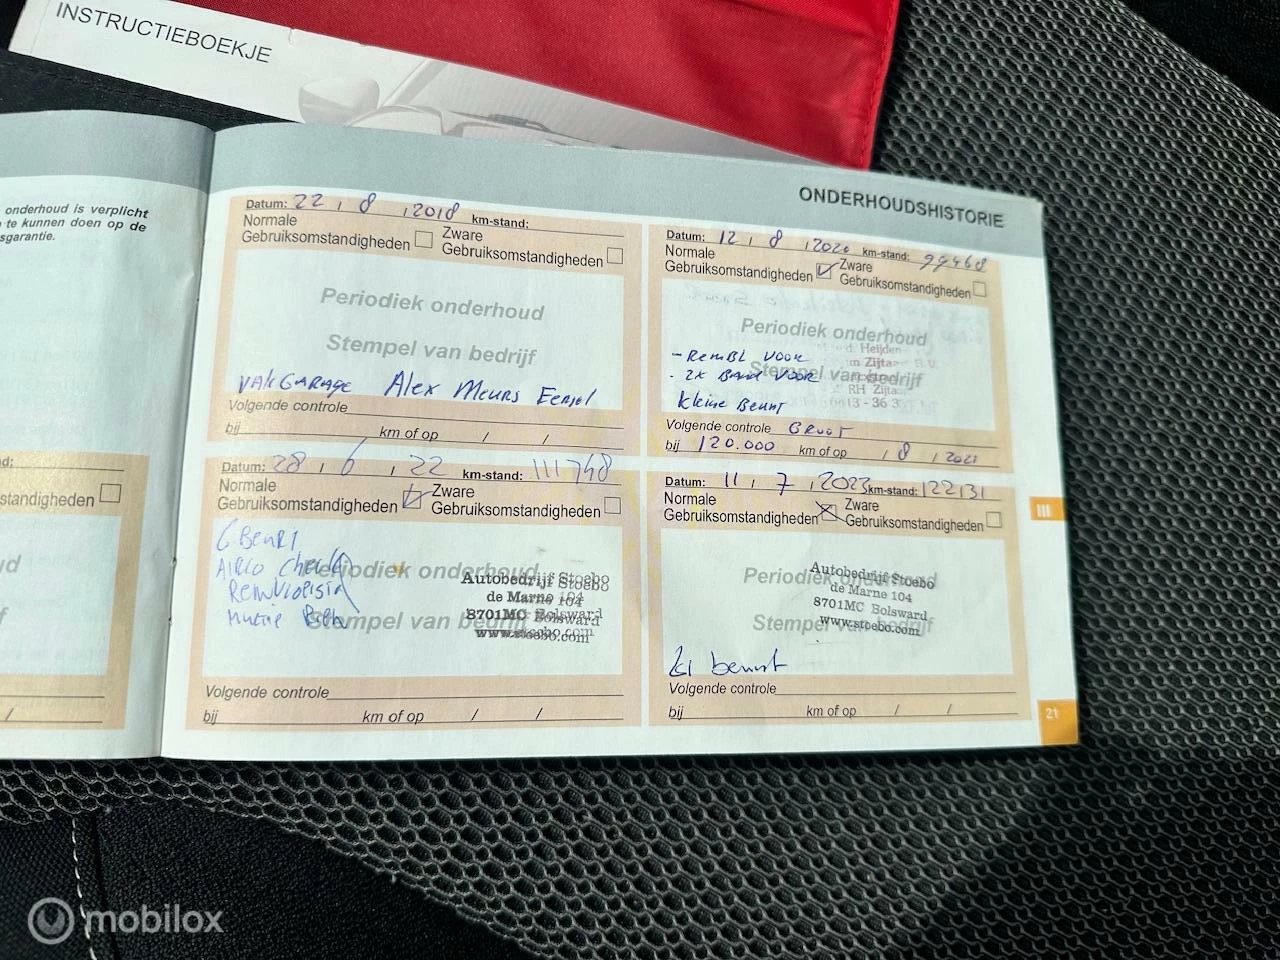 INSTRUCTIEBOEKJE
onderhoud is verplicht
te kunnen doen op de
sgarantie.
ONDERHOUDSHISTORIE
Datum: 22 / 8 / 2018 km-stand:
Normale
Gebruiksomstandigheden
Zware
Gebruiksomstandigheden
Periodiek onderhoud
Stempel van bedrijf
VAKGARAGE Alex Meurs Eersel
Volgende controle
bij km of op / /
Datum: 12 / 8 / 2020 km-stand: 99468
Normale
Gebruiksomstandigheden
Zware
Gebruiksomstandigheden
Periodiek onderhoud
Heijden
- RemBL VOOR
Zijta
B.V.
- 2x BAND VOOR
Stempel van bedrijf
RH Zijta
kleine Beurt
0413 - 36 3
Volgende controle Groot
bij 120.000 km of op / 8 / 2021
Datum: 28 / 6 / 22 km-stand: 111748
Normale
Gebruiksomstandigheden
Zware
Gebruiksomstandigheden
G BEURT
AIRCO check
Periodiek onderhoud
Autobedrijf Stoebo
de Marne 104
Stempel van bedrijf
8701MC Bolsward
www.stoebo.com
Volgende controle
bij km of op / /
Datum: 11 / 7 / 2023 km-stand: 122131
Normale
Gebruiksomstandigheden
Zware
Gebruiksomstandigheden
Periodiek onderhoud
Autobedrijf Stoebo
de Marne 104
8701MC Bolsward
Stempel van bedrijf
www.stoebo.com
kl beurt
Volgende controle
bij km of op / /
d:
standigheden
III
21
mobilox